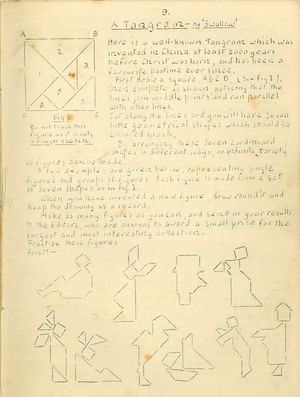 9.
A Tangram - by 'Swallow'
A B
Here is a well-known Tangram which was
invented in China at least 2000 years
before Christ was born, and has been a
favourite pastime ever since.
First draw a square ABCD (See Fig 1).
Then complete as shown, noticing that the
lines join middle points and run parallel
with other lines.
Cut along the lines and you will have seven
little geometrical shapes which should be
coloured black.
By arranging these seven card-board
shapes in different ways, an infinite variety
of figures can be made.
1 2 4 5 7
Fig 1
figure as it is only
a rough sketch.
A few examples are given below, representing single
figures and groups of figures. Each figure is made from a set
of seven shapes as in fig 1.
When you have invented a new figure, draw round it and
keep the drawing as a record.
Make as many figures as you can, and send in your results
to the Editors, who are anxious to award a small prize for the
largest and most interesting collection.
Practise these figures
first:—